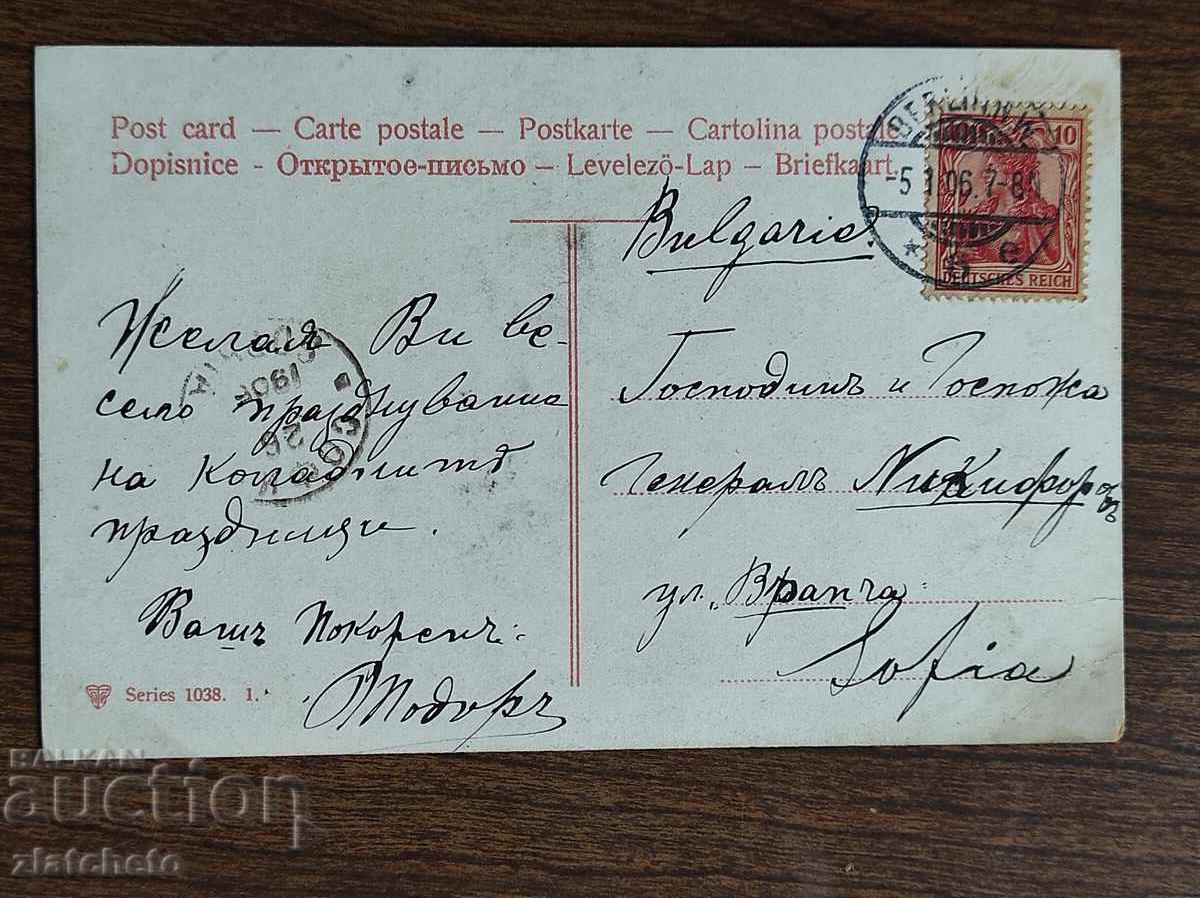 Post card — Carte postale — Postkarte — Cartolina postale
Dopisnice - Открытое-письмо — Levelezö-Lap — Briefkaart
Bulgaria.
BERLIN
-5.1.06.7-8
* e
10
DEUTSCHES REICH
Желая Ви ве-
село празднувание
на Коладнитѣ
празdници.
Вашъ Покоренъ:
Тодоръ
Господинъ и Госпожа
Генералъ Никифоровъ
ул. Врапча
Sofia
1906
26
Series 1038. 1.
BALKAN
auction
zlatcheto